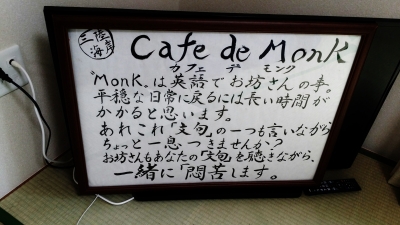 三陸海岸
Cafe de Monk
カフェ デ モンク
"Monk"は英語でお坊さんの事。
平穏な日常に戻るには長い時間が
かかると思います。
あれこれ「文句」の一つも言いながら
ちょっと一息つきませんか?
お坊さんもあなたの「文句」を聴きながら、
一緒に「悶苦」します。